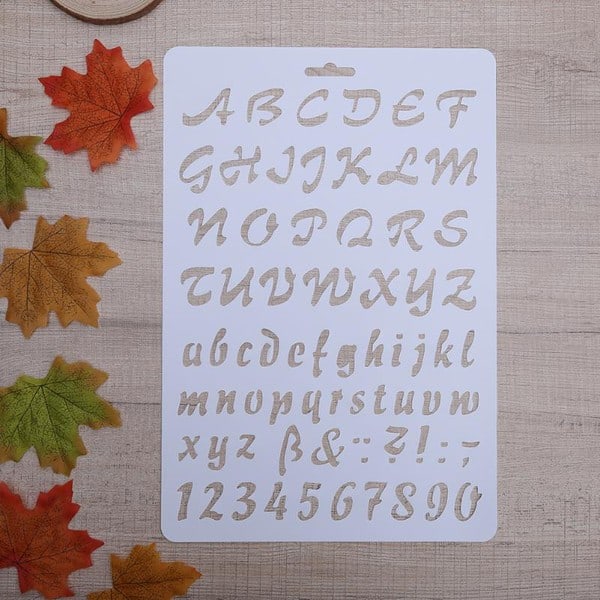 ABCDEF
GHIJKLM
NOPQRS
TUVWXYZ
abcdefghijkl
mnopqrstuvw
xyz ß&::?!:;-
1234567890